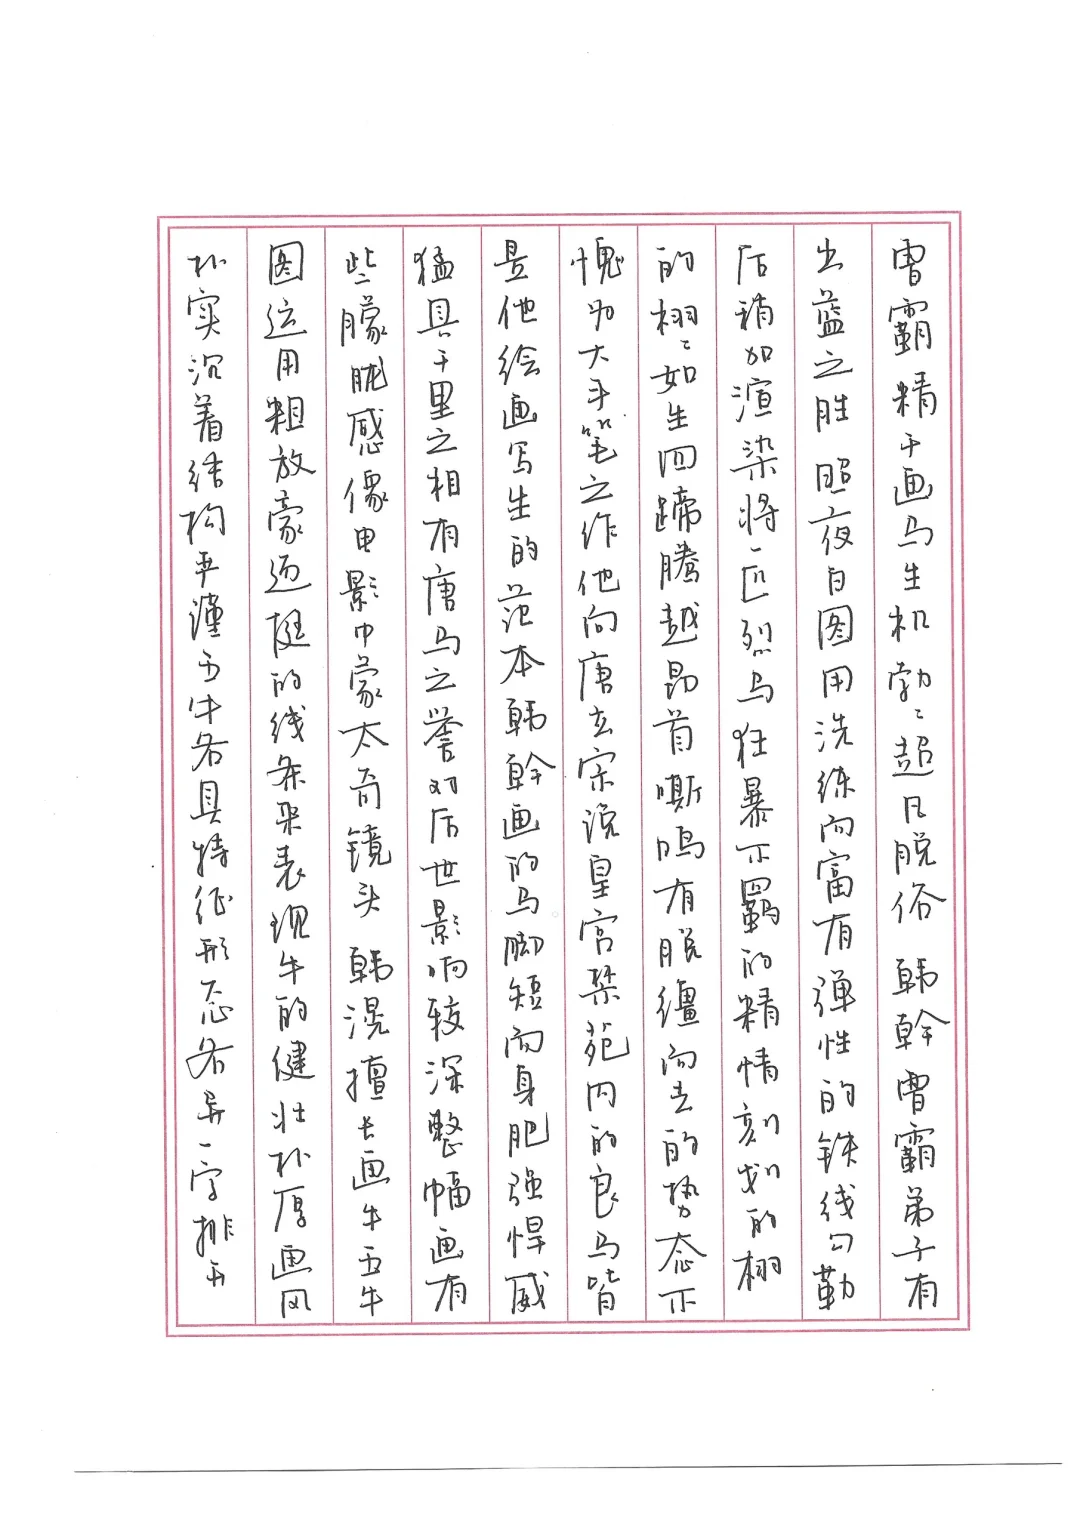 曹霸精于画马生机勃々超凡脱俗韩幹曹霸弟子有
出蓝之胜照夜白图用洗练而富有弹性的铁线勾勒
后稍加渲染将一匹烈马狂暴不羁的精情刻划的栩
的栩々如生四蹄腾越昂首嘶鸣有脱缰而去的势态不
愧为大手笔之作他向唐玄宗说皇宫禁苑内的良马皆
是他绘画写生的范本韩幹画的马脚短而身肥强悍威
猛具千里之相有唐马之誉对后世影响较深整幅画有
些朦胧感像电影中蒙太奇镜头韩滉擅长画牛五牛
图运用粗放豪迈挺的线条来表现牛的健壮朴厚画风
朴实沉着结构严谨五牛各具特征形态各异一字排开